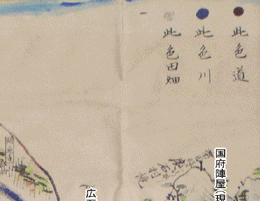 此色道
此色川
此色田畑
国府陣屋(現
広